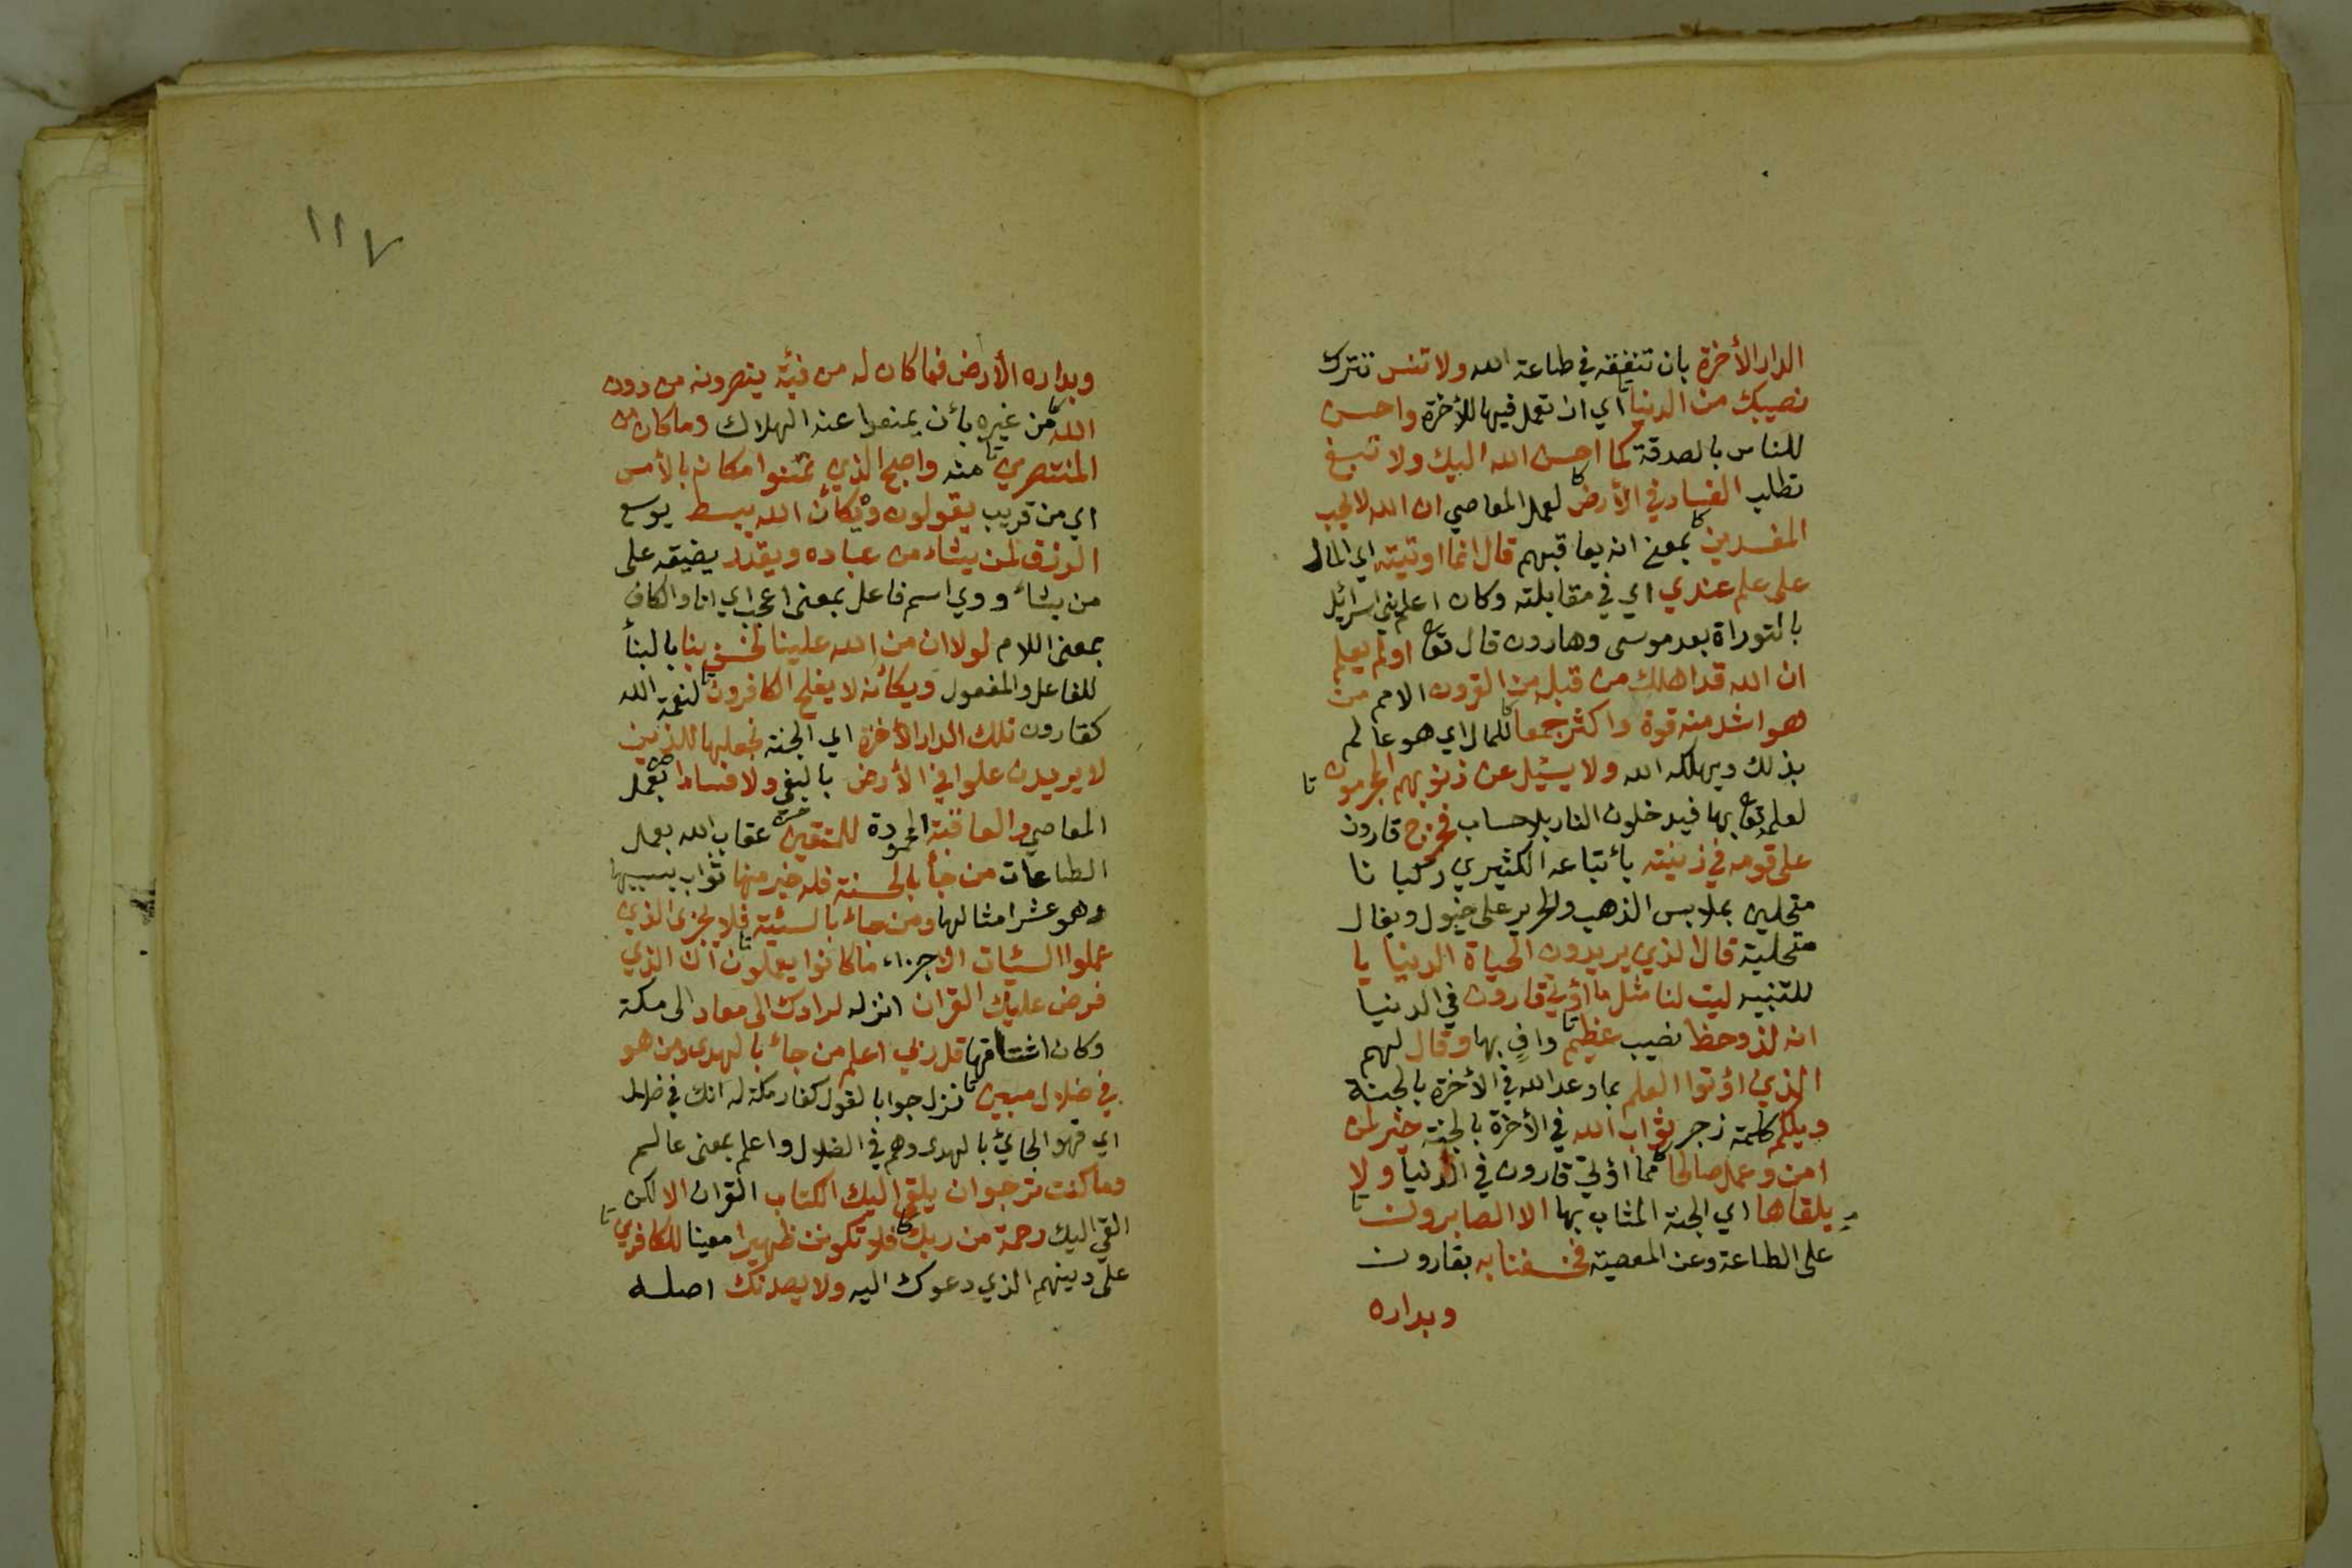 الدار الأخرة بان تنفقه في طاعة الله ولا تنس تترك
نصيبك من الدنيا اي ان تعمل فيها للأخرة واحسن
للناس بالصدقة كما احسن الله اليك ولا تبغ
تطلب الفساد في الأرض لعمل المعاصي ان الله لا يحب
المفسدين بمعنى انه يعاقبهم قال انما اوتيته اي المال
على علم عندي اي في مقابلته وكان اعلم بني اسرائيل
بالتوراة بعد موسى وهارون قال تعا اولم يعلم
ان الله قد اهلك من قبله من القرون الامم من
هو اشد منه قوة واكثر جمعا للمال اي هو عالم
بذلك ويهلكه الله ولا يسئل عن ذنوبهم المجرمون
لعلم تعا بها فيدخلون النار بلا حساب فخرج قارون
على قومه في زينته بأتباعه الكثيرين ركبانا
متحلين بملابس الذهب والحرير على خيول وبغال
متحلية قال الذين يريدون الحياة الدنيا يا
للتنبيه ليت لنا مثل ما اؤتي قارون في الدنيا
انه لذو حظ نصيب عظيم وافٍ بها وقال لهم
الذين اؤتوا العلم بما وعد الله في الأخرة بالجنة
ويلكم كلمة زجر ثواب الله في الأخرة بالجنة خير لمن
امن وعمل صالحا مما اؤتي قارون في الدنيا ولا
يلقاها اي الجنة المثاب بها الا الصابرون
على الطاعة وعن المعصية فخسفنا به بقارون
وبداره
١١٧
وبداره الأرض فما كان له من فئة ينصرونه من دون
الله من غيره بأن يمنعوا عنه الهلاك وما كان من
المنتصرين منه واصبح الذين تمنوا مكانه بالأمس
اي من قريب يقولون ويكأن الله يبسط يوسع
الرزق لمن يشاء من عباده ويقدر يضيقه على
من يشاء ووي اسم فاعل بمعنى اعجب اي انا والكاف
بمعنى اللام لولا ان من الله علينا لخسف بنا بالبنأ
للفاعل والمفعول ويكأنه لا يفلح الكافرون لنعمة الله
كقارون تلك الدار الأخرة اي الجنة نجعلها للذين
لا يريدون علوا في الأرض بالبغي ولا فسادا بعمل
المعاصي والعاقبة المحمودة للمتقين عقاب الله بعمل
الطاعات من جأ بالحسنة فله خير منها ثواب بسببها
وهو عشر امثالها ومن جاء بالسيئة فلا يجزى الذين
عملوا السيئات الا جزاء ما كانوا يعملون ان الذي
فرض عليك القران انزله لرادك الى معاد الى مكة
وكان اشتاقها قل ربي اعلم من جاء بالهدى ومن هو
في ضلال مبين نزل جوابا لقول كفار مكة له انك في ضلال
اي فهو الجائي بالهدى وهم في الضلال واعلم بمعنى عالم
وما كنت ترجوا ان يلقى اليك الكتاب القران الا لكن
القي اليك رحمة من ربك فلا تكونن ظهيرا معينا للكافرين
على دينهم الذي دعوك اليه ولا يصدنك اصله